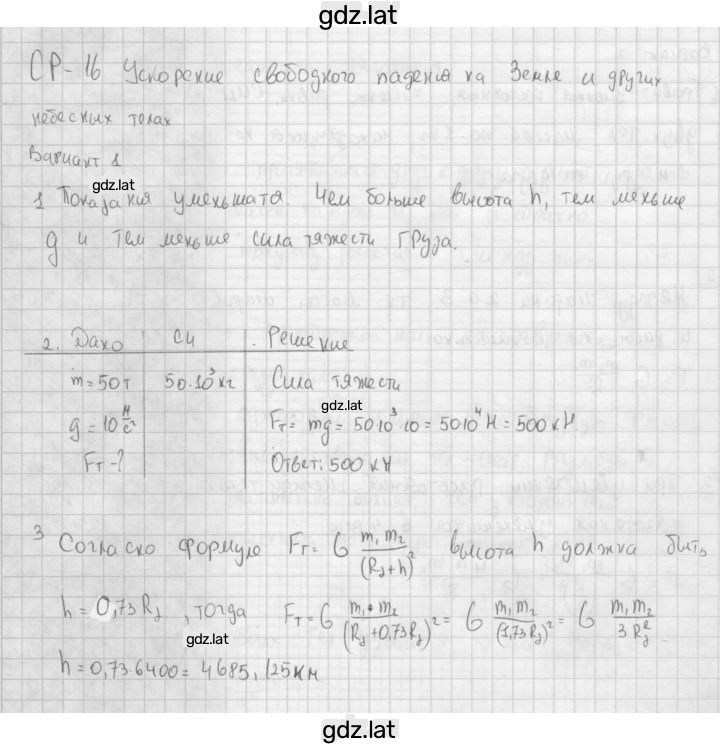 gdz.lat
СР-16 Ускорение свободного падения на Земле и других
небесных телах
Вариант 1
gdz.lat
1 Показания уменьшатся. Чем больше высота h, тем меньше
g и тем меньше сила тяжести груза.
2. Дано СИ Решение
m=50т 50·10³кг Сила тяжести
gdz.lat
g=10 Н/с² Fт= mg = 50·10³·10=50·10⁴ Н = 500 кН.
Fт-? Ответ: 500 кН
3 Согласно формуле Fт= G m₁m₂/(Rз+h)² высота h должна быть
h=0,73Rз, тогда Fт=G m₁·m₂/(Rз+0,73Rз)² = G m₁m₂/(1,73Rз)² = G m₁m₂/3Rз²
gdz.lat
h=0,73·6400=4685,125км
gdz.lat